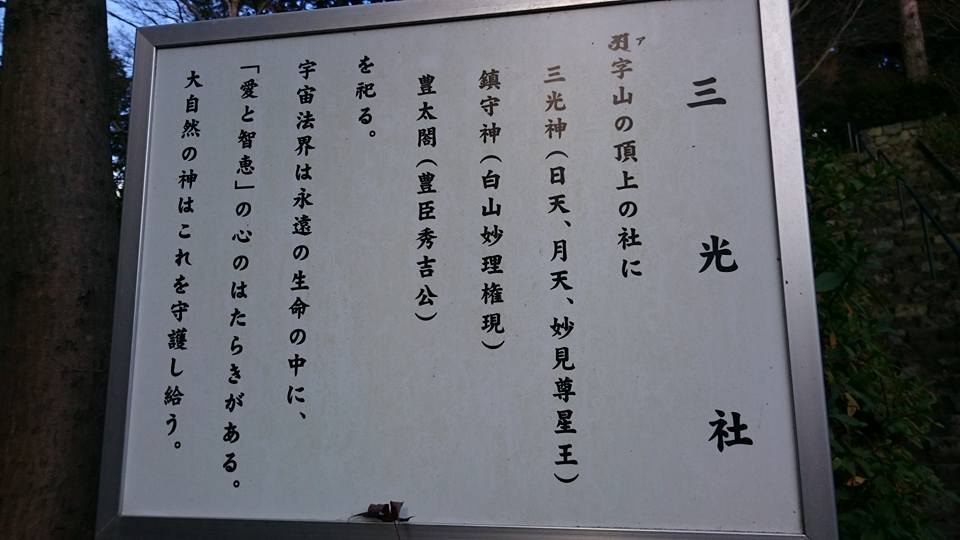 三光社
𑖀字山の頂上の社に
ア
三光神(日天、月天、妙見尊星王)
鎮守神(白山妙理権現)
豊太閤(豊臣秀吉公)
を祀る。
宇宙法界は永遠の生命の中に、
「愛と智恵」の心のはたらきがある。
大自然の神はこれを守護し給う。